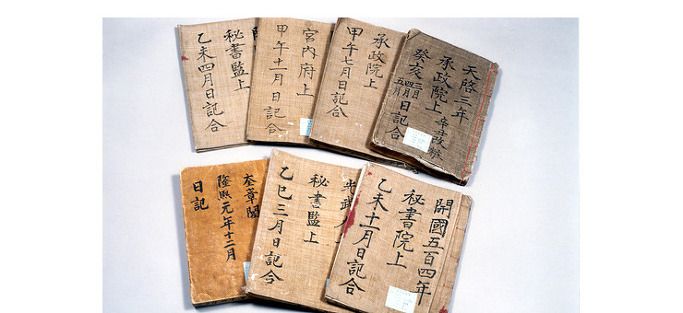 秘書監上
乙未四月日記合
宮內府上
甲午十一月日記合
承政院上
甲午七月日記合
天啓三年
承政院上
癸亥三月四月五月日記合
奎章閣
隆熙元年十二月
日記
秘書監上
乙巳三月日記合
開國五百四年
秘書院上
乙未十一月日記合